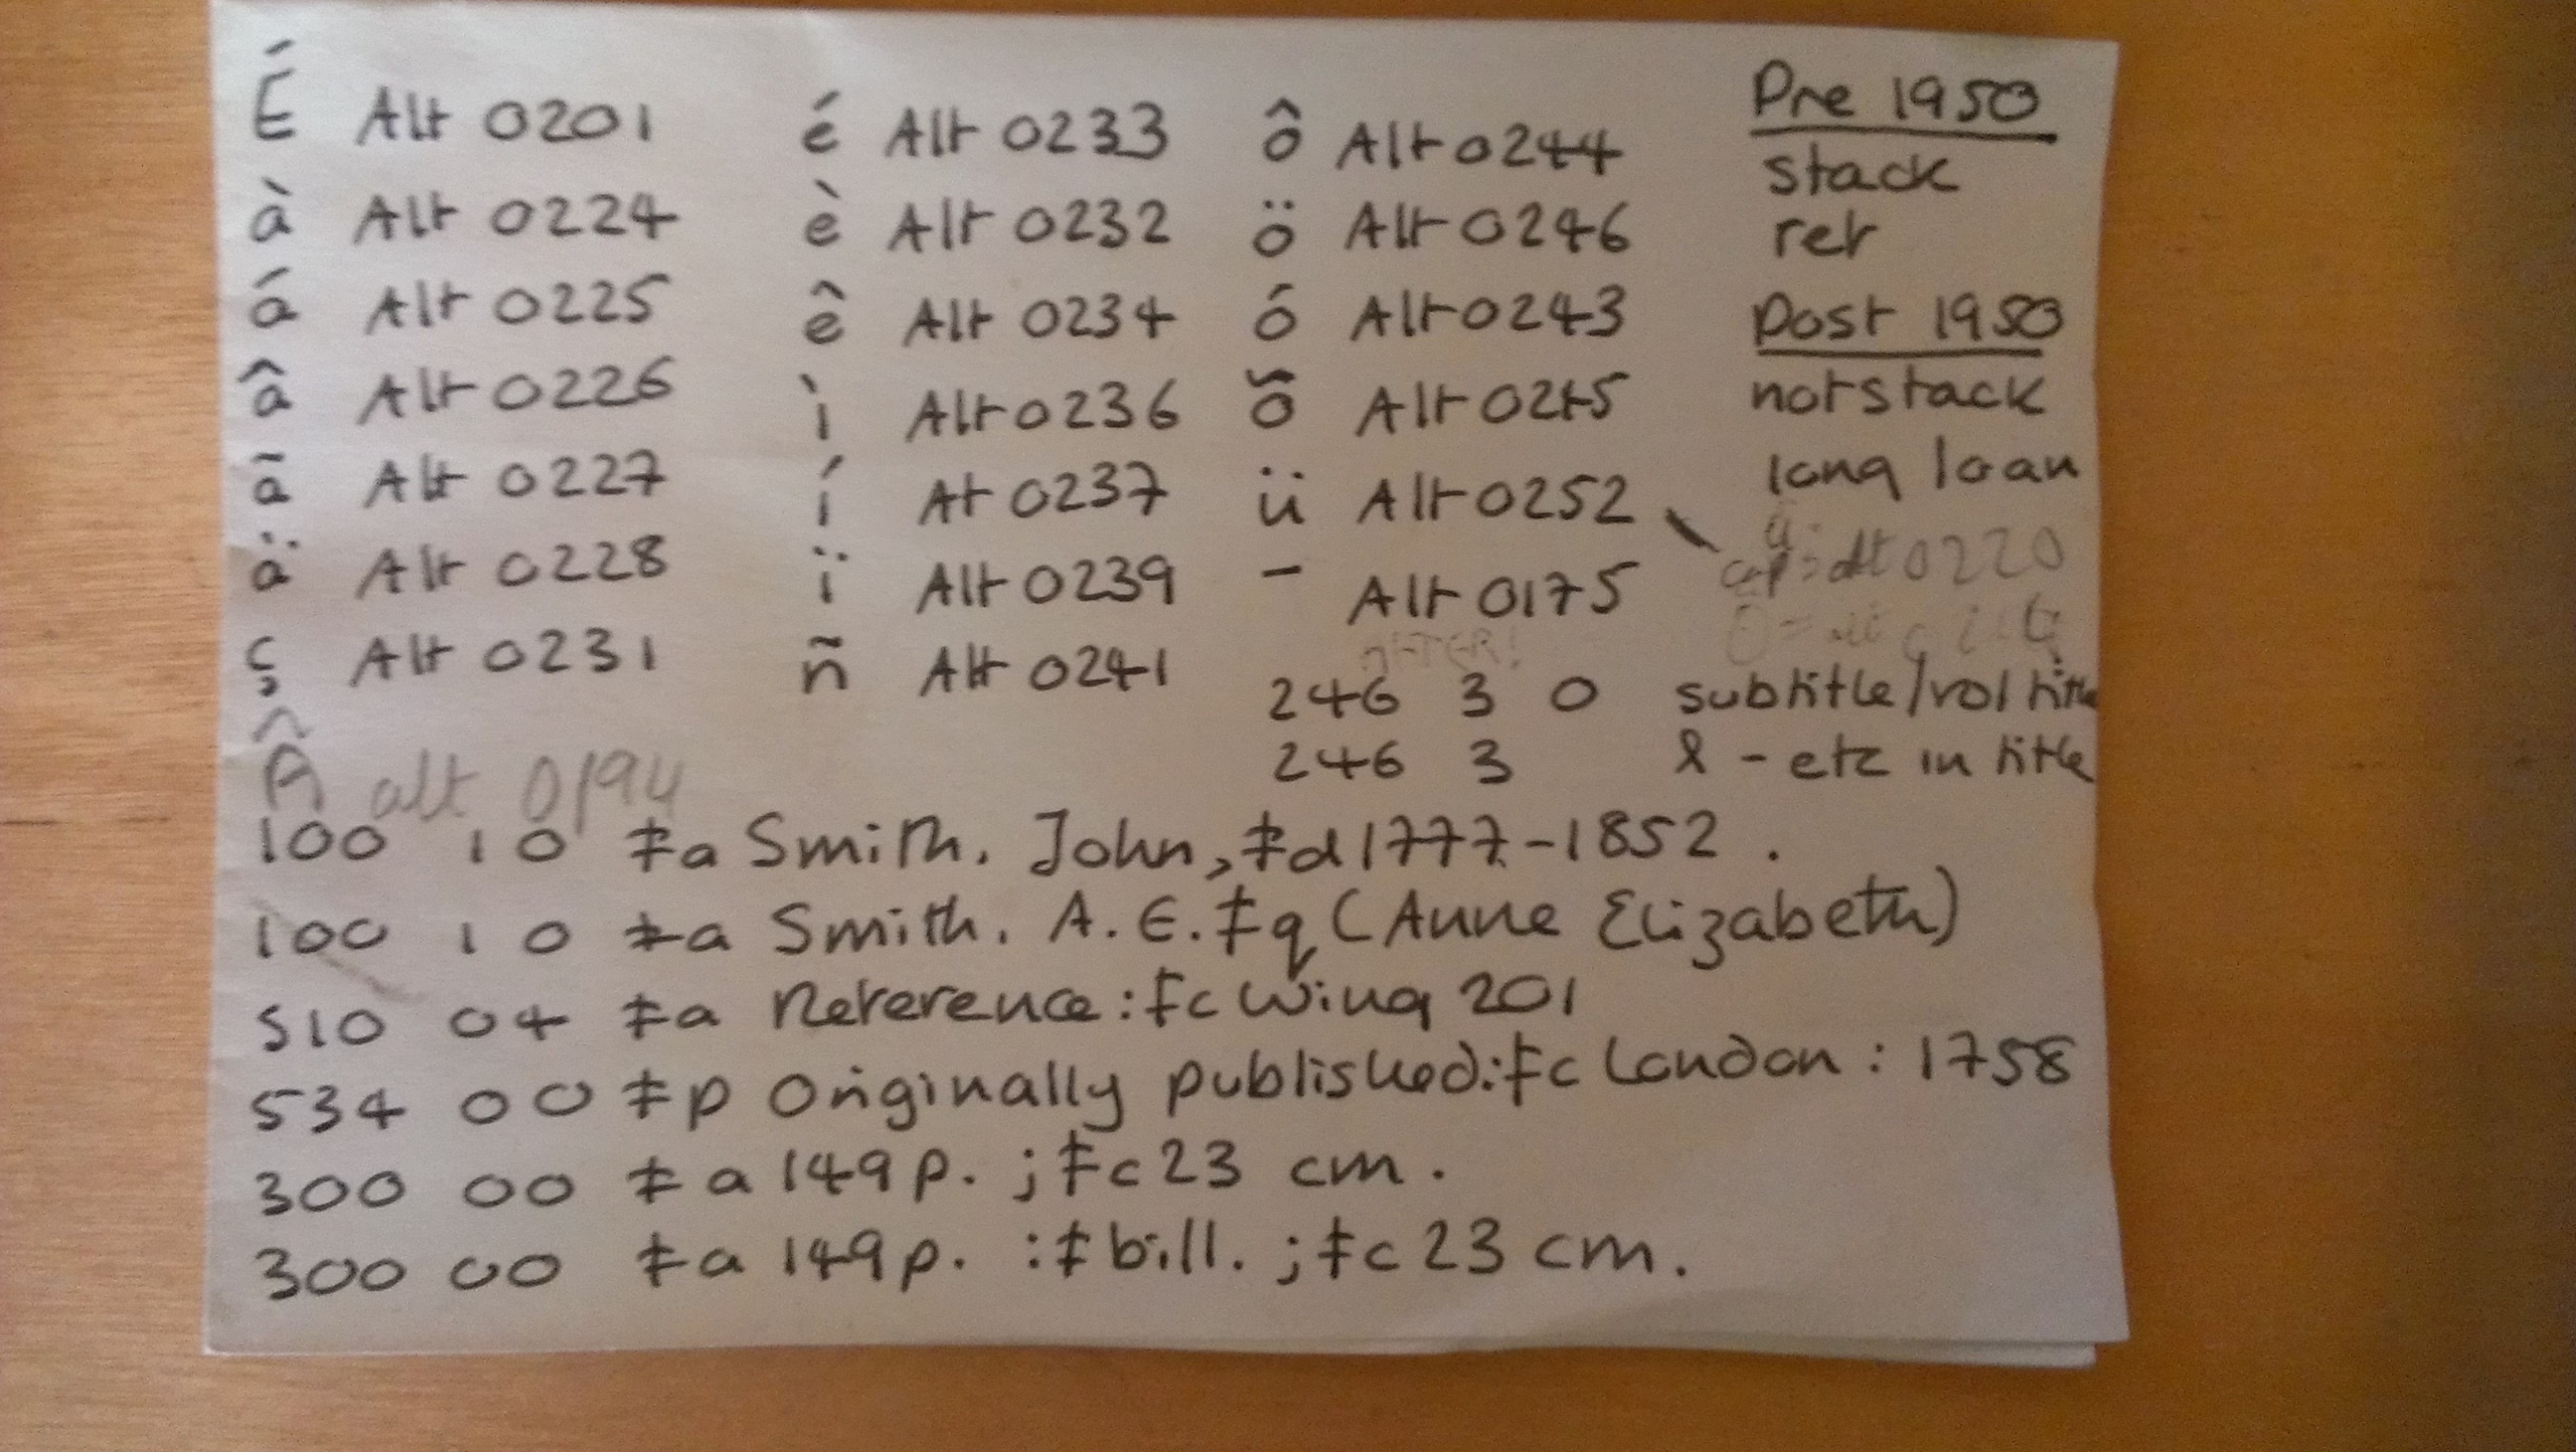 É Alt 0201 é Alt 0233 ô Alt 0244 Pre 1950
à Alt 0224 è Alt 0232 ö Alt 0246 stack
á Alt 0225 ê Alt 0234 ó Alt 0243 ref
â Alt 0226 ì Alt 0236 õ Alt 0245 Post 1950
ã Alt 0227 í At 0237 ü Alt 0252 notstack
ä Alt 0228 ï Alt 0239 ¯ Alt 0175 long loan
ç Alt 0231 ñ Alt 0241 alt 0220
AFTER!
246 3 0 subtitle/vol title
246 3 & - etc in title
Â alt 0194
100 10 ‡a Smith, John, ‡d 1777-1852.
100 10 ‡a Smith, A. E. ‡q (Anne Elizabeth)
510 04 ‡a Reference: ‡c Wing 201
534 00 ‡p Originally published: ‡c London: 1758
300 00 ‡a 149 p. ; ‡c 23 cm.
300 00 ‡a 149 p. : ‡b ill. ; ‡c 23 cm.